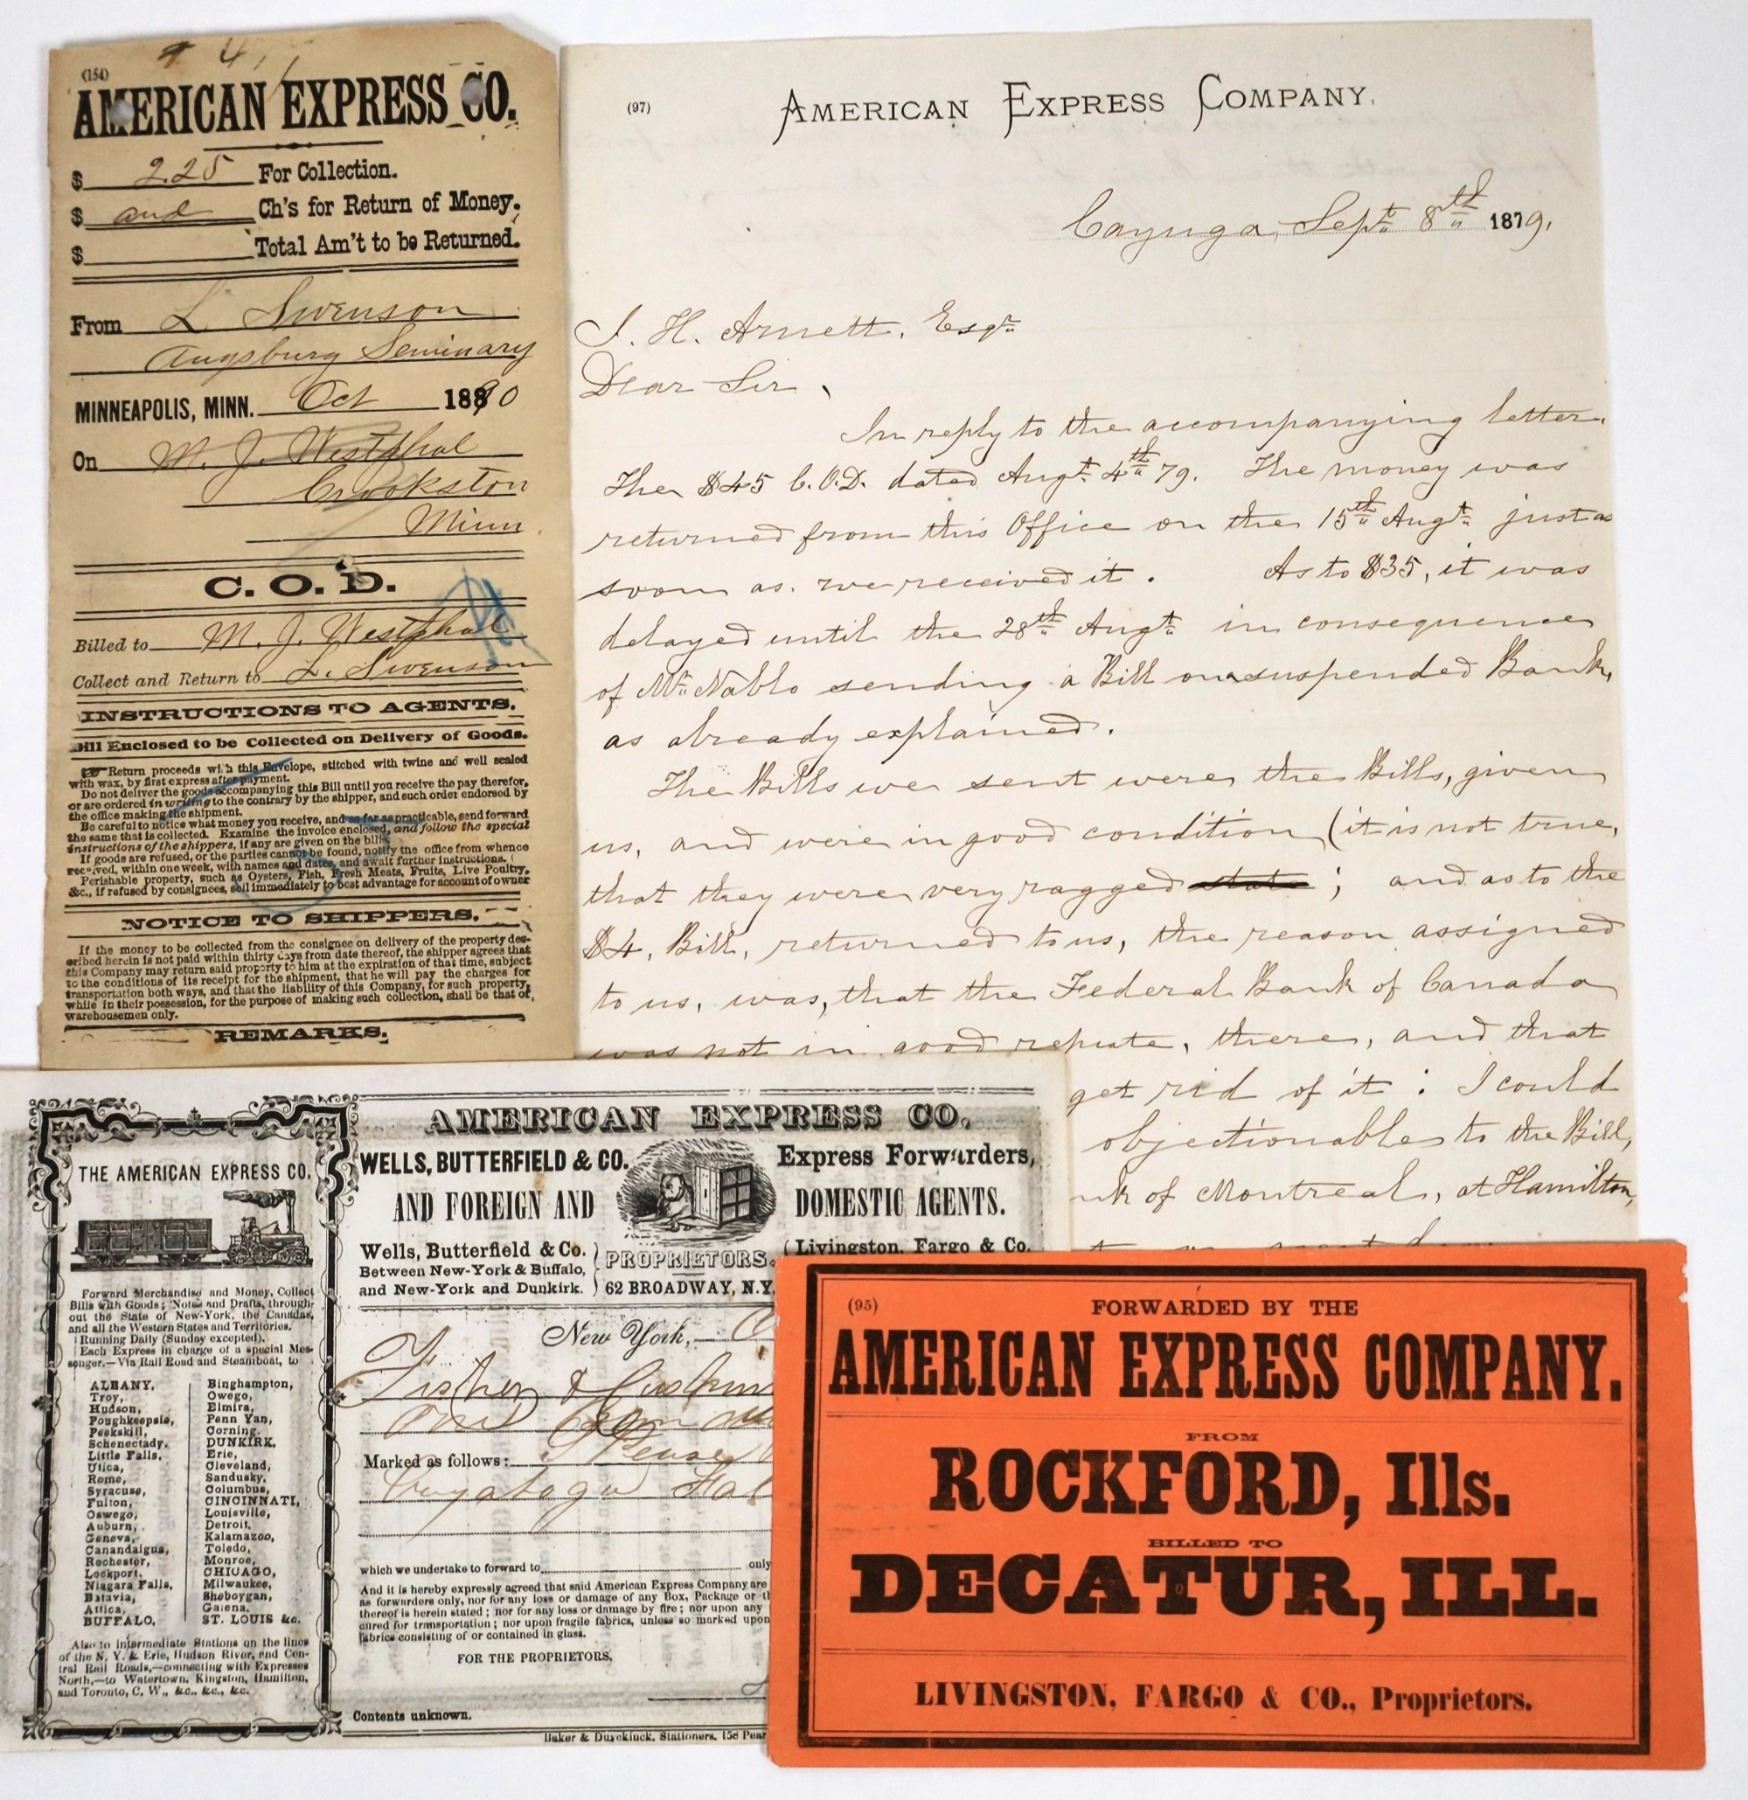 (154)
AMERICAN EXPRESS CO.
$ 2.25 For Collection.
$ and Ch's for Return of Money.
$ Total Am't to be Returned.
From L. Swenson
Augsburg Seminary
MINNEAPOLIS, MINN. Oct 1890
On M. J. Westphal
Crookston
Minn
C. O. D.
Billed to M. J. Westphal
Collect and Return to L. Swenson
INSTRUCTIONS TO AGENTS.
Bill Enclosed to be Collected on Delivery of Goods.
Return proceeds with this Envelope, stitched with twine and well sealed
with wax, by first express after payment.
Do not deliver the goods accompanying this Bill until you receive the pay therefor,
or are ordered in writing to the contrary by the shipper, and such order endorsed by
the office making the shipment.
Be careful to notice what money you receive, and as far as practicable, send forward
the same that is collected. Examine the invoice enclosed, and follow the special
instructions of the shippers, if any are given on the bill.
If goods are refused, or the parties cannot be found, notify the office from whence
received, within one week, with names and dates, and await further instructions.
Perishable property, such as Oysters, Fish, Fresh Meats, Fruits, Live Poultry,
&c., if refused by consignees, sell immediately to best advantage for account of owner
NOTICE TO SHIPPERS.
If the money to be collected from the consignee on delivery of the property des-
cribed herein is not paid within thirty days from date thereof, the shipper agrees that
this Company may return said property to him at the expiration of that time, subject
to the conditions of its receipt for the shipment, that he will pay the charges for
transportation both ways, and that the liability of this Company, for such property,
while in their possession, for the purpose of making such collection, shall be that of
warehousemen only.
REMARKS.
(97)
AMERICAN EXPRESS COMPANY.
Cayuga, Septr 8th 1879.
J. H. Arnett, Esqr
Dear Sir,
In reply to the accompanying letter.
The $45 C.O.D. dated Augt 4th 79. The money was
returned from this Office on the 15th Augt just as
soon as we received it. As to $35, it was
delayed until the 28th Augt in consequence
of Mr Nablo sending a Bill on suspended Bank,
as already explained.
The Bills we sent were the Bills, given
us, and were in good condition (it is not true,
that they were very ragged ; and as to the
$4, Bill, returned to us, the reason assigned
to us, was, that the Federal Bank of Canada
was not in good repute, there, and that
get rid of it : I could
objectionable to the Bill,
nk of Montreal, at Hamilton,
AMERICAN EXPRESS CO.
THE AMERICAN EXPRESS CO.
Forward Merchandise and Money, Collect
Bills with Goods; Notes and Drafts, through-
out the State of New-York, the Canadas,
and all the Western States and Territories.
Running Daily (Sunday excepted).
Each Express in charge of a special Mes-
senger.—Via Rail Road and Steamboat, to
ALBANY,
Troy,
Hudson,
Poughkeepsie,
Peekskill,
Schenectady,
Little Falls,
Utica,
Rome,
Syracuse,
Fulton,
Oswego,
Auburn,
Geneva,
Canandaigua,
Rochester,
Lockport,
Niagara Falls,
Batavia,
Attica,
BUFFALO,
Binghampton,
Owego,
Elmira,
Penn Yan,
Corning,
DUNKIRK,
Erie,
Cleveland,
Sandusky,
Columbus,
CINCINNATI,
Louisville,
Detroit,
Kalamazoo,
Toledo,
Monroe,
CHICAGO,
Milwaukee,
Sheboygan,
Galena,
ST. LOUIS &c.
Also to intermediate Stations on the lines
of the N. Y. & Erie, Hudson River, and Cen-
tral Rail Roads,—connecting with Expresses
North,—to Watertown, Kingston, Hamilton,
and Toronto, C. W., &c., &c., &c.
WELLS, BUTTERFIELD & CO. Express Forwarders,
AND FOREIGN AND DOMESTIC AGENTS.
Wells, Butterfield & Co.
Between New-York & Buffalo,
and New-York and Dunkirk.
PROPRIETORS.
62 BROADWAY, N.Y.
Livingston, Fargo & Co.
New York,
Marked as follows:
which we undertake to forward to only
And it is hereby expressly agreed that said American Express Company are
as forwarders only, nor for any loss or damage of any Box, Package or
thereof is herein stated; nor for any loss or damage by fire; nor upon any
cured for transportation; nor upon fragile fabrics, unless so marked upon
fabrics consisting of or contained in glass.
FOR THE PROPRIETORS,
Contents unknown.
Baker & Duyckinck, Stationers, 158 Pear
(95)
FORWARDED BY THE
AMERICAN EXPRESS COMPANY.
FROM
ROCKFORD, Ills.
BILLED TO
DECATUR, ILL.
LIVINGSTON, FARGO & CO., Proprietors.